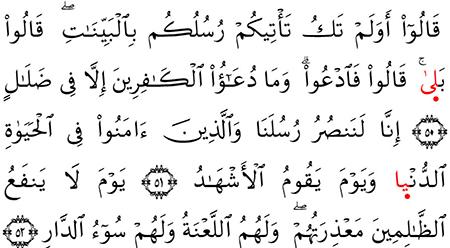 قَالُوٓا۟ أَوَلَمْ تَكُ تَأْتِيكُمْ رُسُلُكُم بِٱلْبَيِّنَـٰتِ ۖ قَالُوا۟
بَلَىٰ ۚ قَالُوا۟ فَٱدْعُوا۟ ۗ وَمَا دُعَـٰٓؤُا۟ ٱلْكَـٰفِرِينَ إِلَّا فِى ضَلَـٰلٍ
﴿٥٠﴾ إِنَّا لَنَنصُرُ رُسُلَنَا وَٱلَّذِينَ ءَامَنُوا۟ فِى ٱلْحَيَوٰةِ
ٱلدُّنْيَا وَيَوْمَ يَقُومُ ٱلْأَشْهَـٰدُ ﴿٥١﴾ يَوْمَ لَا يَنفَعُ
ٱلظَّـٰلِمِينَ مَعْذِرَتُهُمْ ۖ وَلَهُمُ ٱللَّعْنَةُ وَلَهُمْ سُوٓءُ ٱلدَّارِ ﴿٥٢﴾